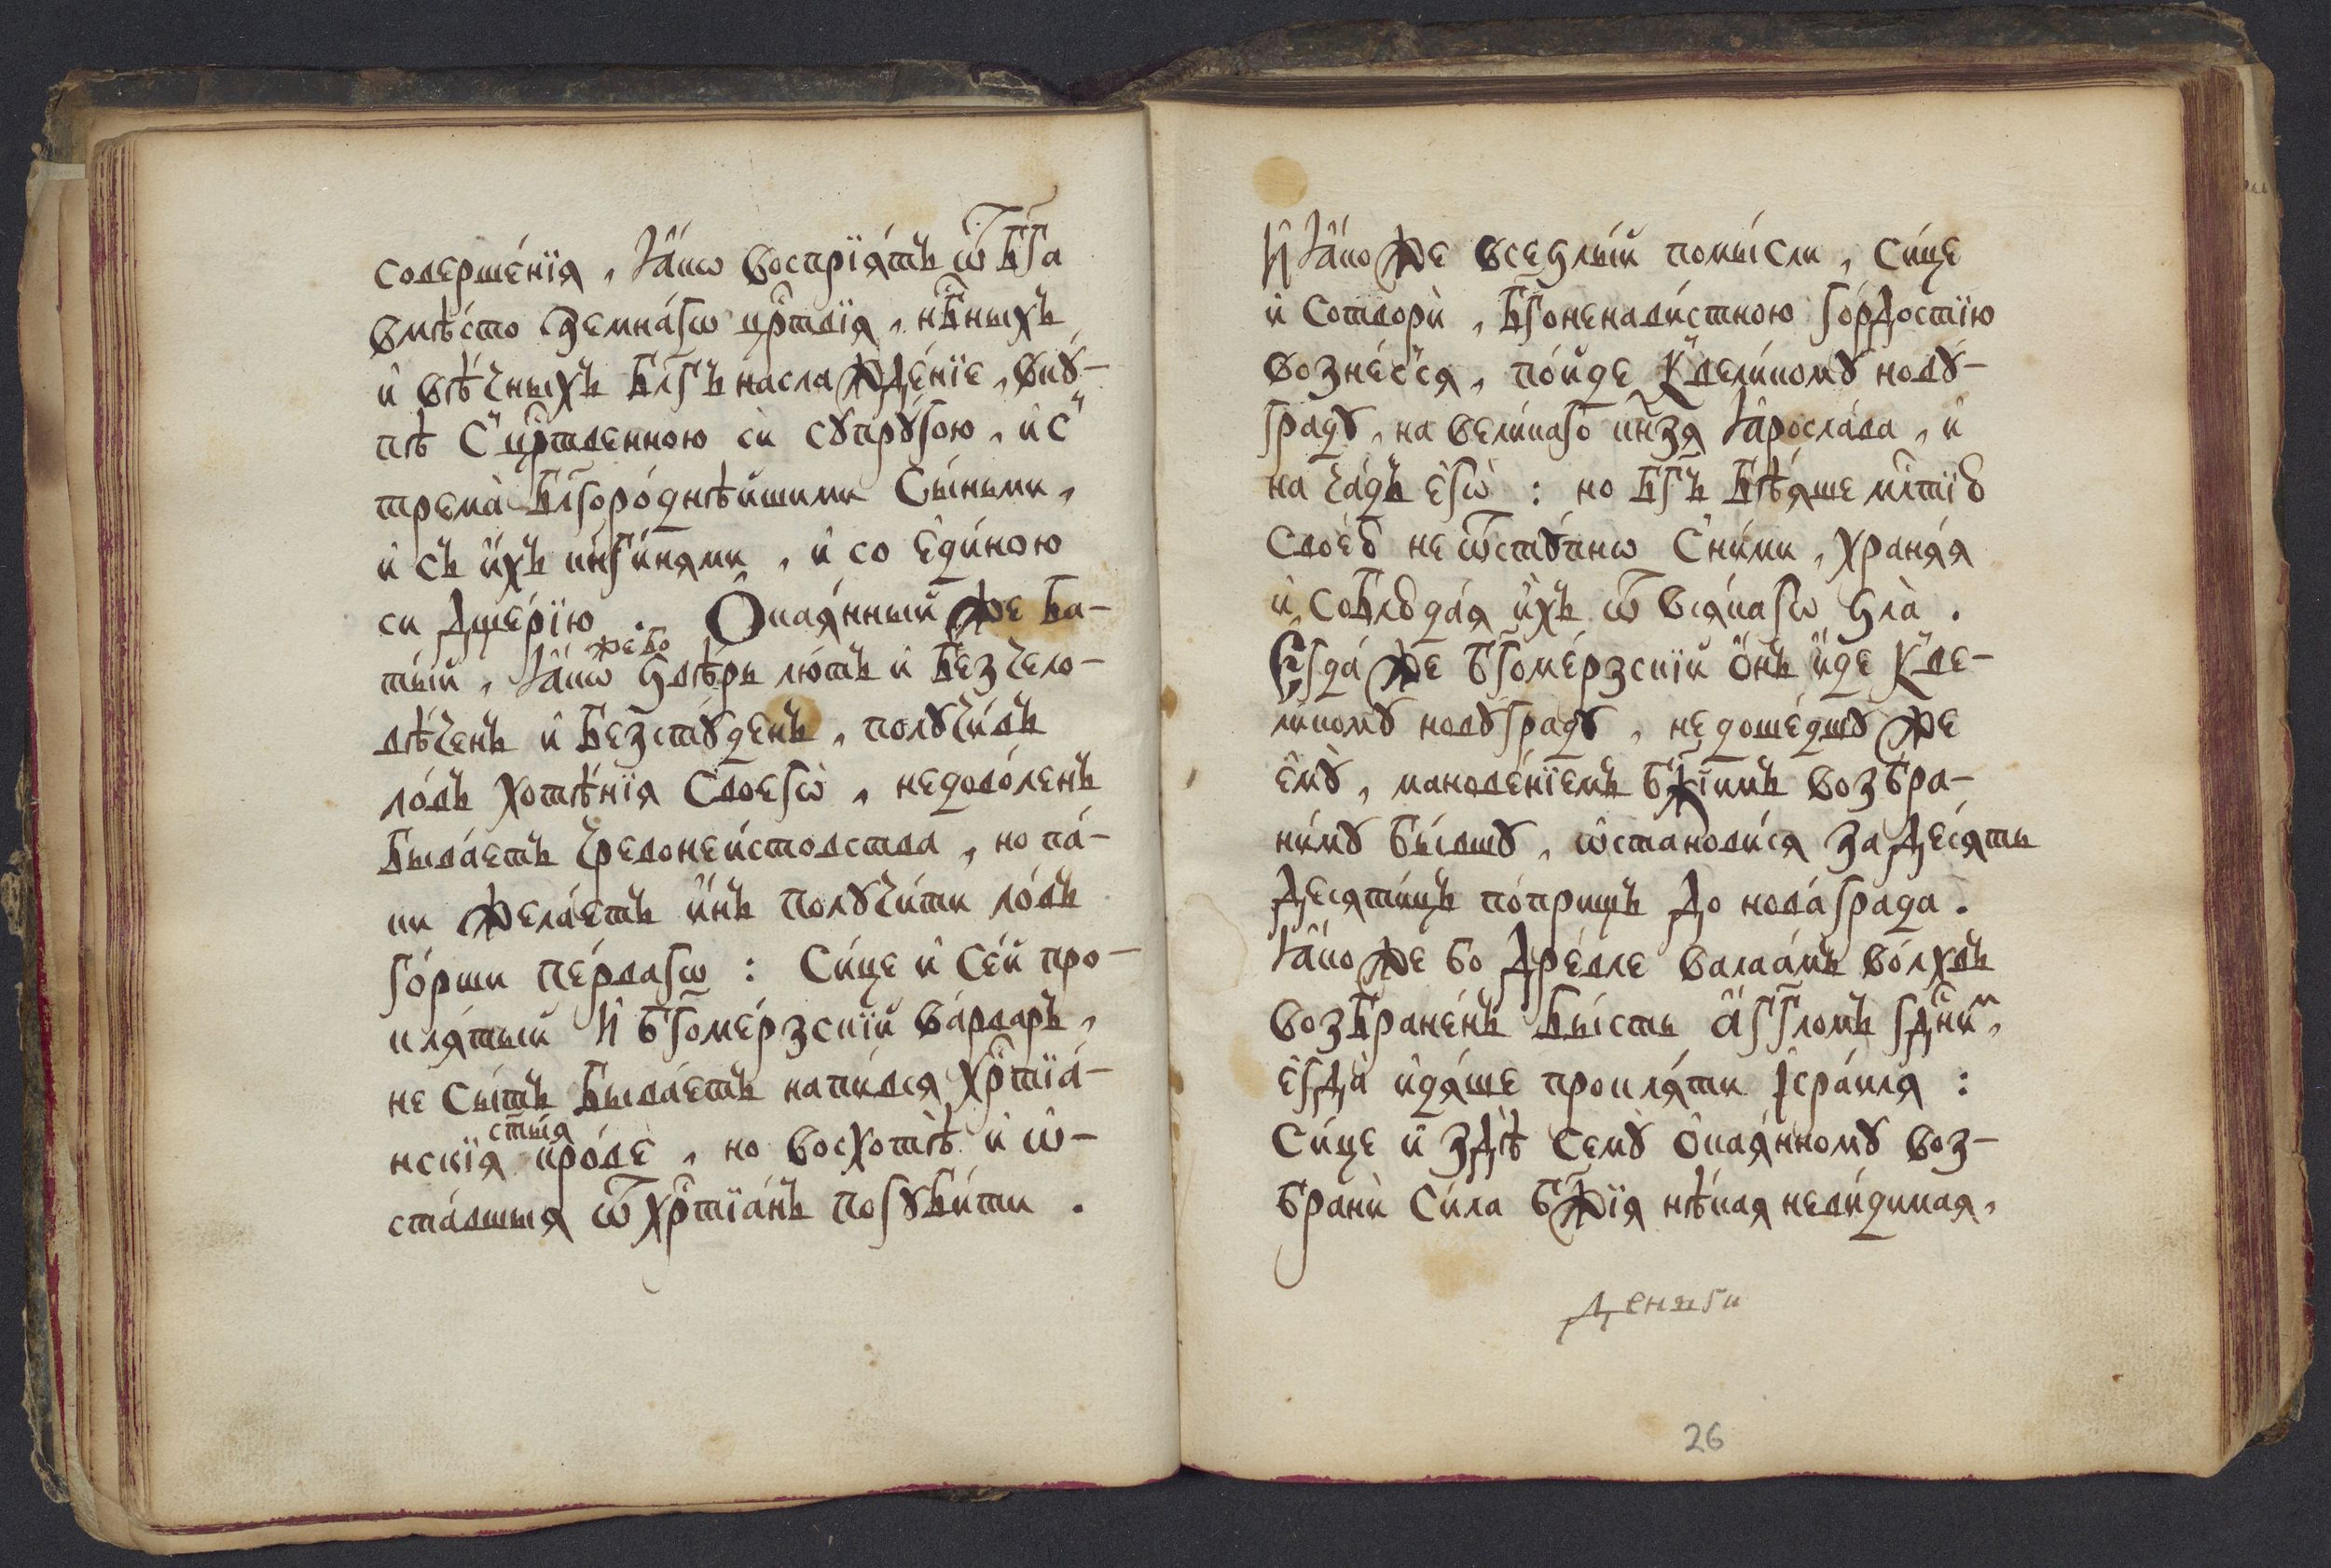 соверше́нїѧ, ꙗ҆́кѡ воспрїѧ́тъ ѿ бг҃а
вмѣ́сто земна́гѡ црⷭ҇твїѧ, нб҃ныхъ
и҆ вѣ́чныхъ бл҃гъ наслажде́нїе, вкꙋ́-
пѣ с̾ црⷭ҇твенною си сꙋпрꙋ́гою, и҆ с̾
трема̀ бл҃горо́днѣйшими сы́нъми,
и҆ съ и҆́хъ кн҃ги́нѧми, и҆ со є҆ди́ною
си дще́рїю. Ѻ҆каѧ́нный же ба-
ты́й, ꙗ҆́кѡ же бо ѕвѣ́рь лю́тъ и҆ безчело-
вѣ́ченъ и҆ безстꙋ́денъ, полꙋчи́въ
ло́въ хотѣ́нїѧ своегѡ̀, недово́ленъ
быва́етъ чревонеи́стовства, но па́-
ки жела́етъ и҆́нъ полꙋчи́ти ло́въ
го́рши пе́рвагѡ: си́це и҆ се́й про-
клѧ́тый и҆ бг҃оме́рзскїй ва́рваръ,
не сы́тъ быва́етъ напи́всѧ хрⷭ҇тїа́-
нскїѧ ст҃ы́ѧ кро́ве, но восхотѣ̀ и҆ ѡ҆-
ста́вшыѧ ѿ хрⷭ҇тїа́нъ погꙋби́ти.
И҆ ꙗ҆́коже всеѕлы́й помы́сли, си́це
и҆ сотворѝ, бг҃оненави́стною го́рдостїю
вознє́сс̾ѧ, по́йде к̾ вели́комꙋ новꙋ́-
градꙋ, на вели́каго кн҃зѧ ꙗ҆росла́ва, и҆
на ча́дъ є҆гѡ̀: но бг҃ъ бѣ́ѧше млⷭ҇тїю
свое́ю неѿстꙋ́пнѡ с̾ ни́ми, хранѧ́ѧ
и҆ соблюда́ѧ и҆́хъ ѿ всѧ́кагѡ ѕла̀.
Є҆гда́же бг҃оме́рзскїй ѻ҆́нъ и҆́де к̾ ве-
ли́комꙋ новꙋ́градꙋ, не доше́дшꙋ же
є҆мꙋ̀, манове́нїемъ бж҃їимъ возбра-
ни́мꙋ бы́вшꙋ, ѡ҆станови́сѧ за де́сѧть
десѧти́цъ по́прищъ до нова́града.
Ꙗ҆́коже бо дре́вле валаа́мъ во́лхвъ
возбране́нъ бы́сть а҆́гг҃ломъ гдⷭ҇ниⷨ,
є҆гда̀ и҆дѧ́ше проклѧ́ти і҆сра́илѧ:
си́це и҆ здѣ̀ семꙋ̀ ѻ҆каѧ́нномꙋ воз-
бранѝ си́ла бж҃їѧ нѣ́каѧ неви́димаѧ,
денъги
26